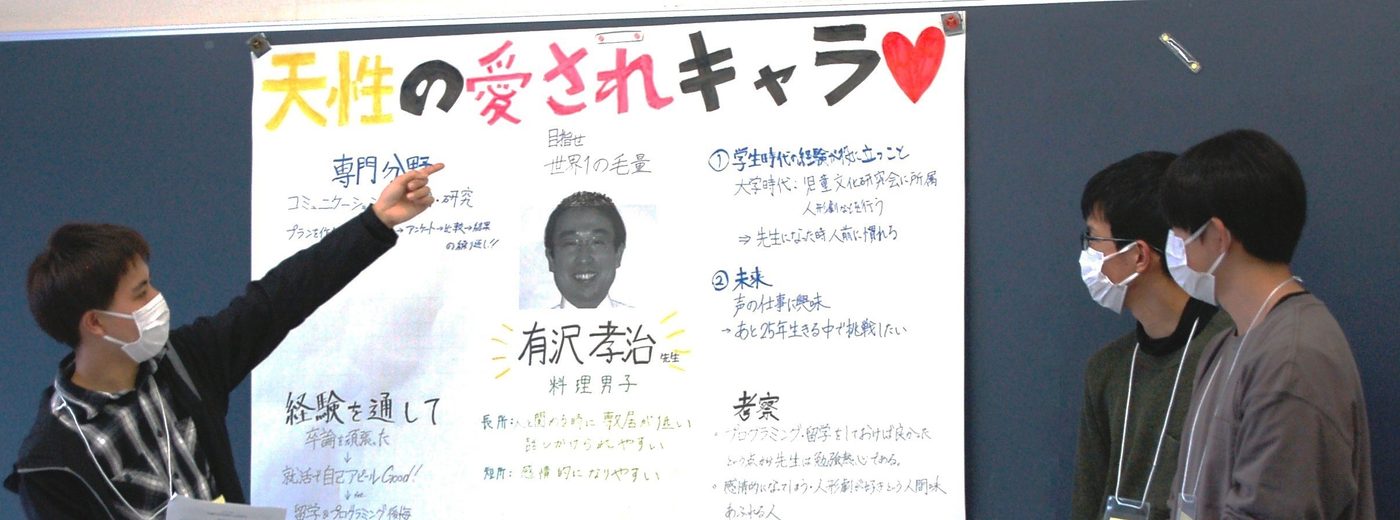 天性の愛されキャラ
専門分野
コミュニケーション ・研究
プランを作 → アンケート→比較→結果
の繰り返し!!
経験を通して
卒論を頑張った
↓
就活で自己アピールGood!
↓
留学&プログラミング後悔
目指せ
世界1の毛量
有沢孝治先生
料理男子
長所:人と関わる時に敷居が低い
話しかけられやすい
短所:感情的になりやすい
①学生時代の経験が役に立つこと
大学時代:児童文化研究会に所属
人形劇などを行う
⇒先生になった時人前に慣れる
②未来
声の仕事に興味
→あと25年生きる中で挑戦したい
考察
・プログラミング・留学をしておけば良かった
という点から先生は勉強熱心である。
・感情的になってしまう・人形劇が好きという人間味
あふれる人